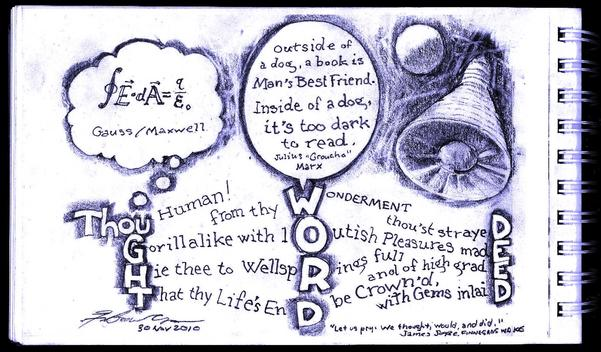 ∮E⃗·dA⃗ = q/ε₀
Gauss/Maxwell
Outside of
a dog, a book is
Man's Best Friend.
Inside of a dog,
it's too dark
to read.
Julius "Groucho"
Marx
Thou Human! from thy WONDERMENT thou'st strayeD
Gorillalike with lOutish Pleasures madE
Hie thee to WellspRings full and of high gradE
That thy Life's EnD be Crown'd, with Gems inlaiD
30 Nov 2010
"Let us pry. We thought, would, and did."
James Joyce, FINNEGANS WAKE